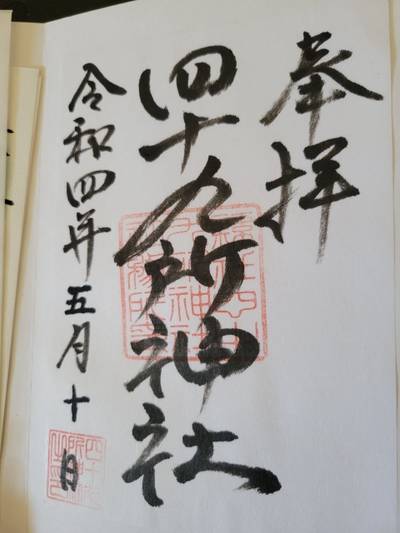 奉拝
四十九所神社
令和四年五月十日